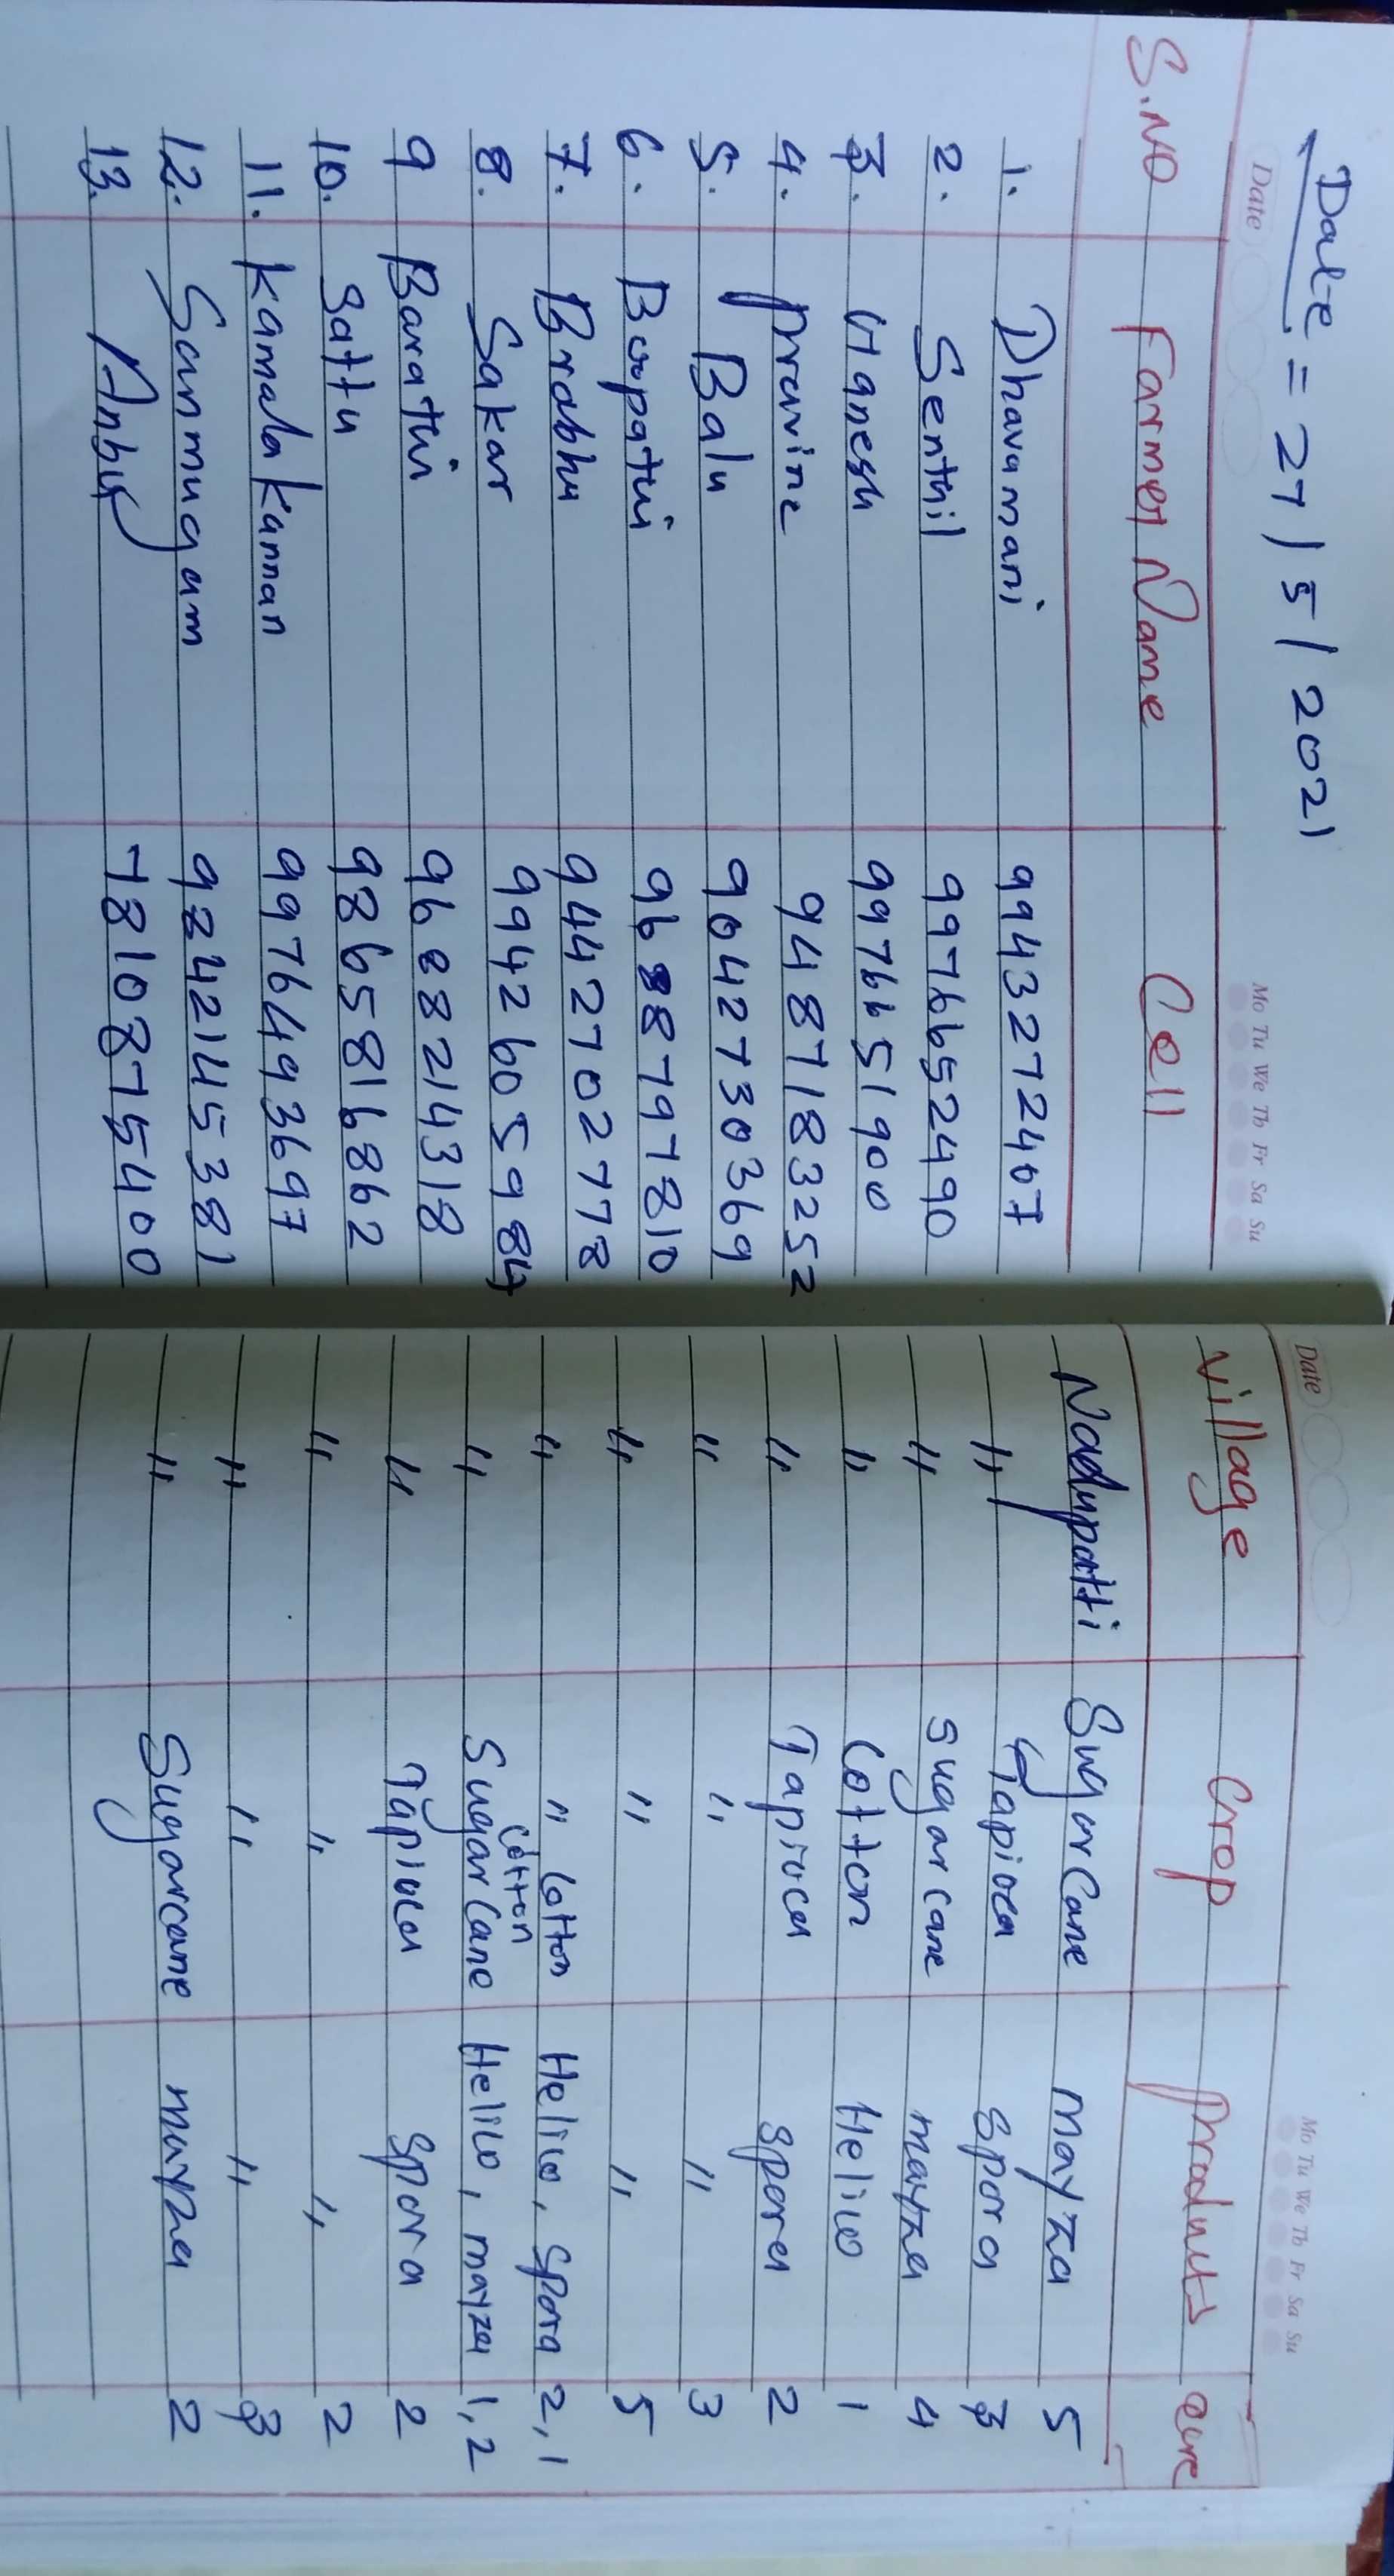 Date = 27/5/2021
Date Mo Tu We Th Fr Sa Su
S.NO Farmer Name Cell
1. Dhavamani 9943272407
2. Senthil 9976652490
3. Ganesh 9976651900
4. Pravine 9487183252
5. Balu 9042730369
6. Boopathi 9688797810
7. Brabhu 9442702778
8. Sakar 9942605984
9 Barathi 9688214318
10. Sattu 9865816862
11. Kamala kannan 9976493697
12. Sanmugam 9242145381
13. Anbu 7810875400
Date Mo Tu We Th Fr Sa Su
Village Crop Products acre
Nadupatti SugarCane mayza 5
" Tapioca spora 3
" sugarcane mayza 4
" Cotton Helico 1
" Tapioca spora 2
" " " 3
" " " 5
" " Cotton Helico, spora 2,1
" Cotton
Sugarcane Helico, mayza 1,2
" Tapioca spora 2
" " " 2
" " " 3
" Sugarcane mayza 2